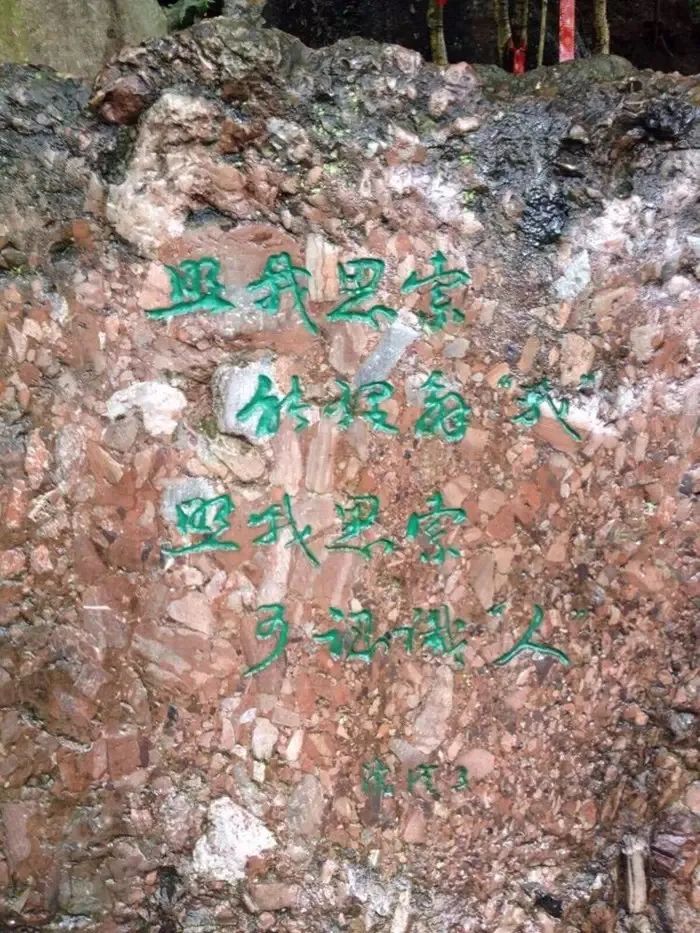 照我思索
能理解“我”
照我思索
可认识“人”
沈从文